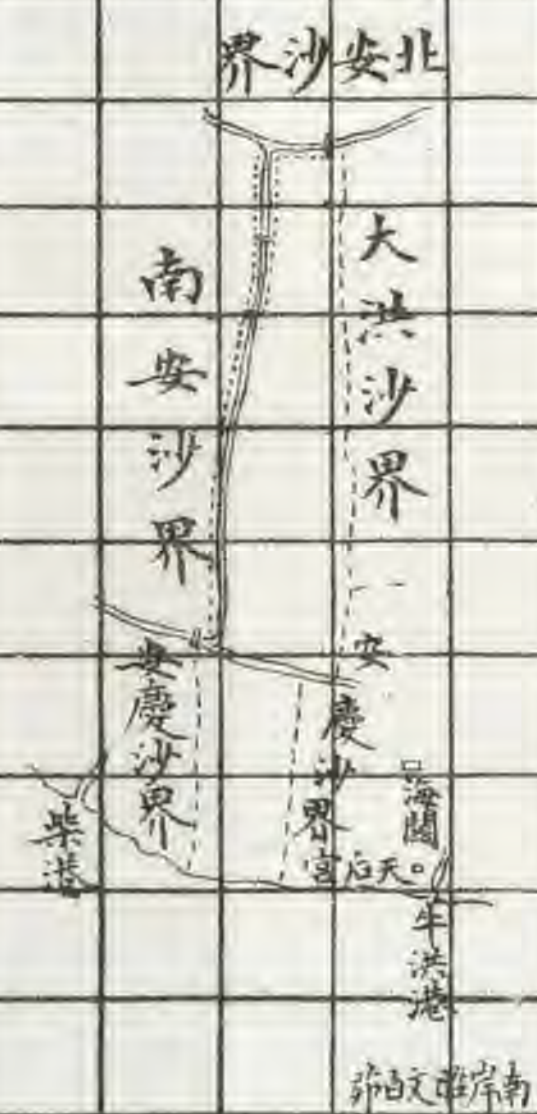 北安沙界
大洪沙界
南安沙界
安慶沙界
安慶沙界
海關
天后宮
柴港
牛洪港
南岸